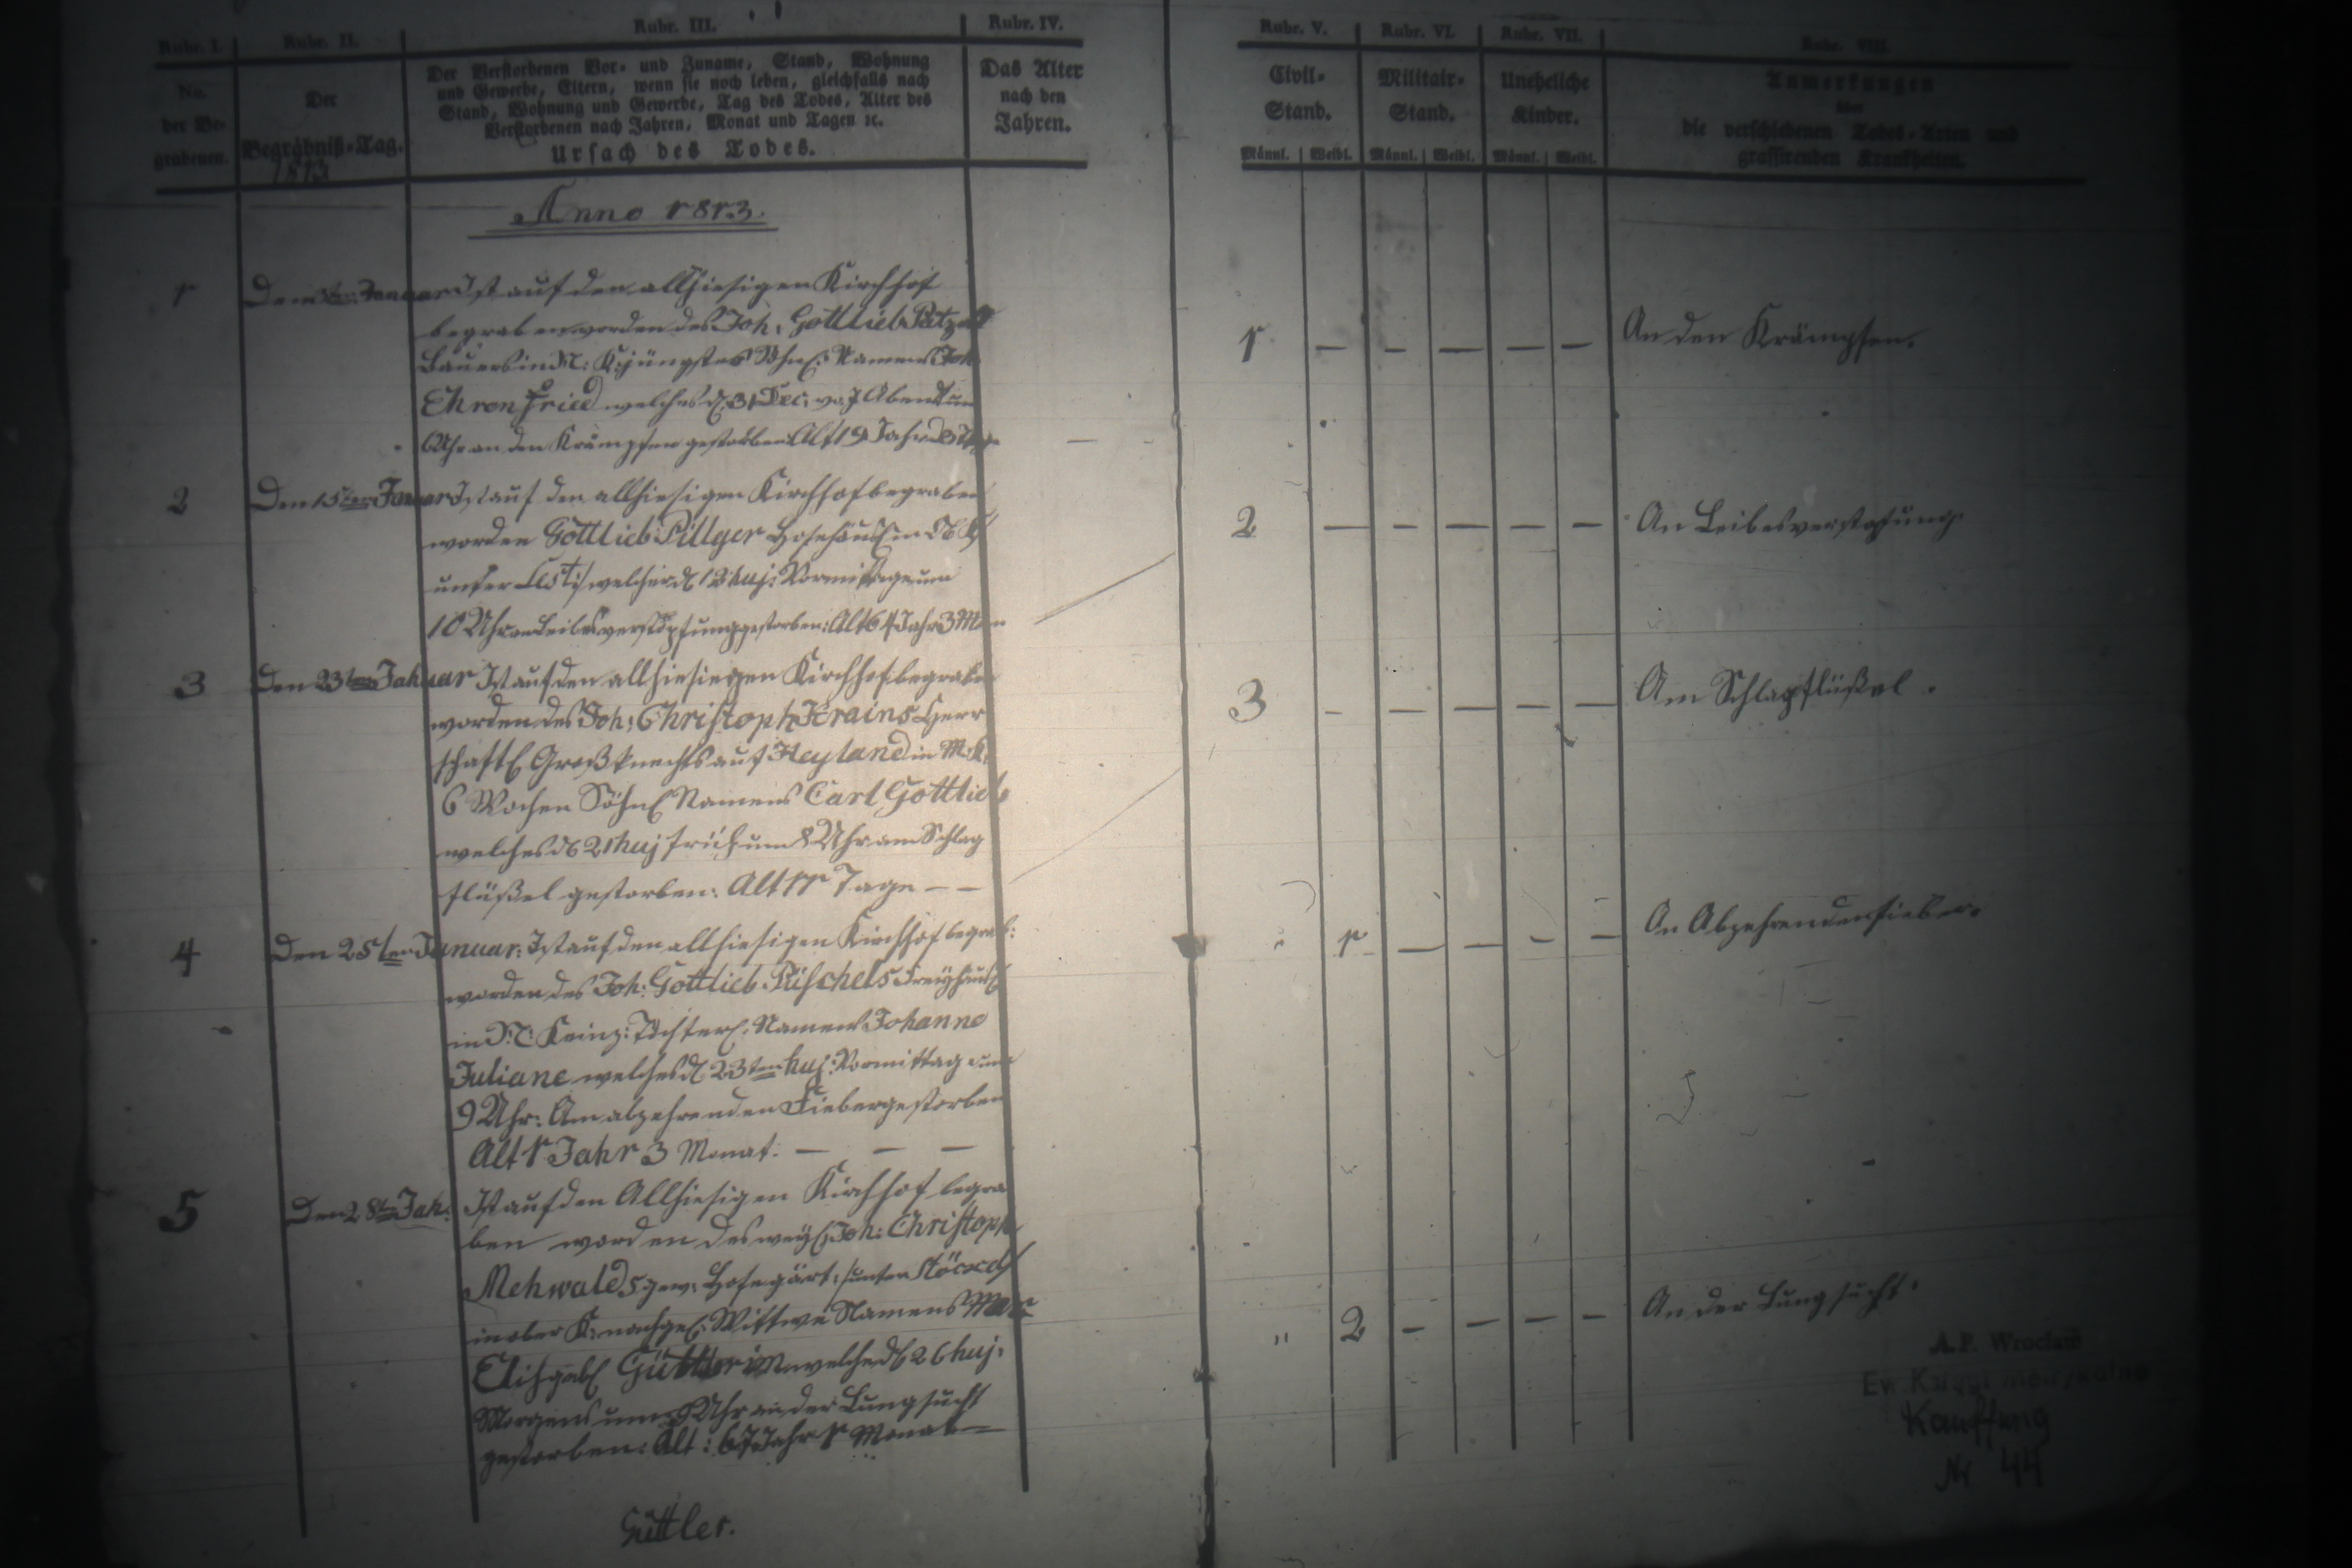 Rubr. I.
No.
der Be-
grabenen.
Rubr. II.
Der
Begräbniß-Tag.
1813
Rubr. III.
Der Verstorbenen Vor- und Zuname, Stand, Wohnung
und Gewerbe, Eltern, wenn sie noch leben, gleichfalls nach
Stand, Wohnung und Gewerbe, Tag des Todes, Alter des
Verstorbenen nach Jahren, Monat und Tagen ꝛc.
Ursach des Todes.
Rubr. IV.
Das Alter
nach den
Jahren.
Rubr. V.
Civil-
Stand.
Männl. Weibl.
Rubr. VI.
Militair-
Stand.
Männl. Weibl.
Rubr. VII.
Uneheliche
Kinder.
Männl. Weibl.
Rubr. VIII.
Anmerkungen
über
die verschiedenen Todes-Arten und
grassirenden Krankheiten.
Anno 1813.
1 Januar Ist auf den allhiesigen Kirchhof
begraben worden des Joh: Gottlieb
Bauers in N: K: jüngstes Söhnl: Namens Joh
Ehrenfried welches d. 31 Dec: Abend um
6 Uhr an den Krämpfen gestorben Alt
1 — — — — — An den Krämpfen.
2 Den 15ten Januar Ist auf den allhiesigen Kirchhof begraben
worden Gottlieb Pillger
unter welcher d. 13 huj: Vormittage um
10 Uhr an Leibesverstopfung gestorben: Alt 64 Jahr 3 Mon
2 — — — — — An Leibesverstopfung
3 Den 23ten Januar Ist auf den allhiesiegen Kirchhof begraben
worden des Joh: Christoph Krains Herr
schaftl Großknechts auf Heyland in M: K:
6 Wochen Söhnl Namens Carl Gottlieb
welches d 21 huj früh um 8 Uhr am Schlag
flüßel gestorben: Alt 11 Tage — —
3 — — — — — Am Schlagflüßel.
4 Den 25ten Januar: Ist auf den allhiesigen Kirchhof begrab:
worden des Joh: Gottlieb Püschels Freyhäusl
in N: K einz: Töchterl: Namens Johanne
Juliane welches d. 23ten huj: Vormittag um
9 Uhr: Am abzehrenden Fieber gestorben
Alt 1 Jahr 3 Monat. — — —
1 — — — — An Abzehrendenfieber.
5 Den 28ten Jan: Ist auf den Allhiesigen Kirchhof begra
ben worden des weyl Joh: Christoph
Mehwalds gew: Hofegärt:
in ober K: nachgel: Wittwe Namens Mar
Elisgab Güttlerin welche d 26 huj:
Morgens um Uhr an der Lungsucht
gestorben: Alt: 67 Jahr 1 Monat —
" 2 — — — — An der Lungsucht.
Güttler.
A.P. Wrocław
Ew. Księgi metrykalne
Kauffung
Nr 44